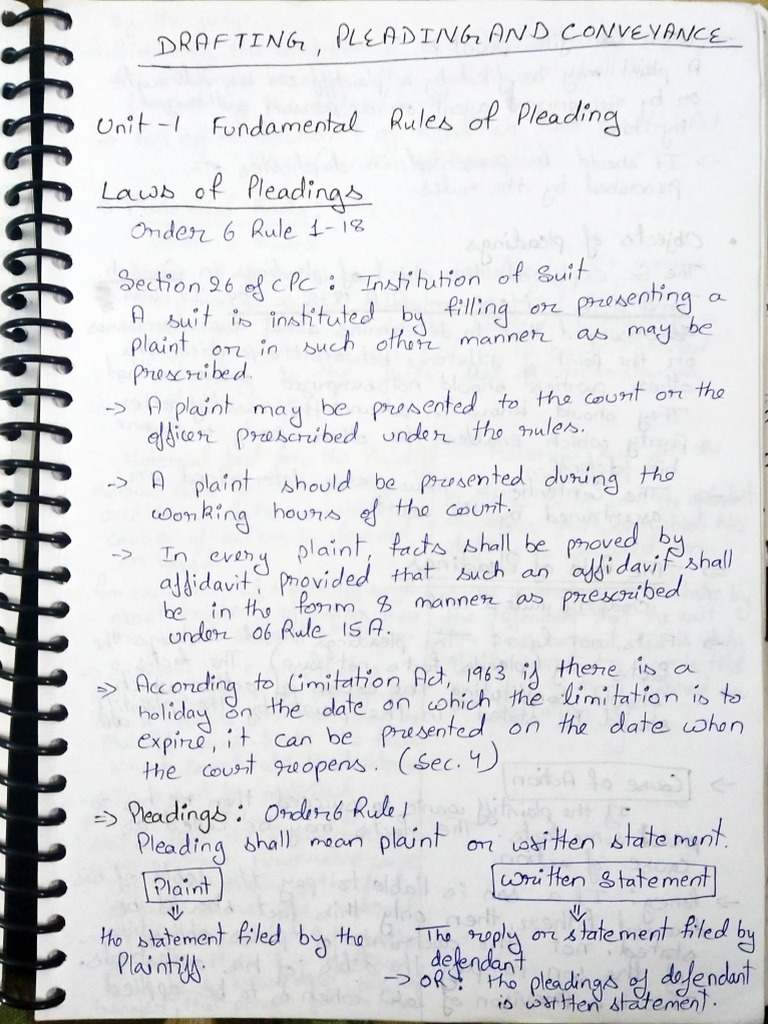 DRAFTING, PLEADING AND CONVEYANCE
Unit-1 Fundamental Rules of Pleading
Laws of Pleadings
Order 6 Rule 1-18
Section 26 of CPC : Institution of Suit
A suit is instituted by filling or presenting a
plaint or in such other manner as may be
prescribed.
-> A plaint may be presented to the court or the
officer prescribed under the rules.
-> A plaint should be presented during the
working hours of the court.
-> In every plaint, facts shall be proved by
affidavit, provided that such an affidavit shall
be in the form & manner as prescribed
under O6 Rule 15A.
=> According to Limitation Act, 1963 if there is a
holiday on the date on which the limitation is to
expire, it can be presented on the date when
the court reopens. (Sec. 4)
=> Pleadings : Order 6 Rule 1
Pleading shall mean plaint or written statement.
Plaint
the statement filed by the
Plaintiff.
Written Statement
The reply or statement filed by
defendant
-> OR : the pleadings of defendant
is written statement.